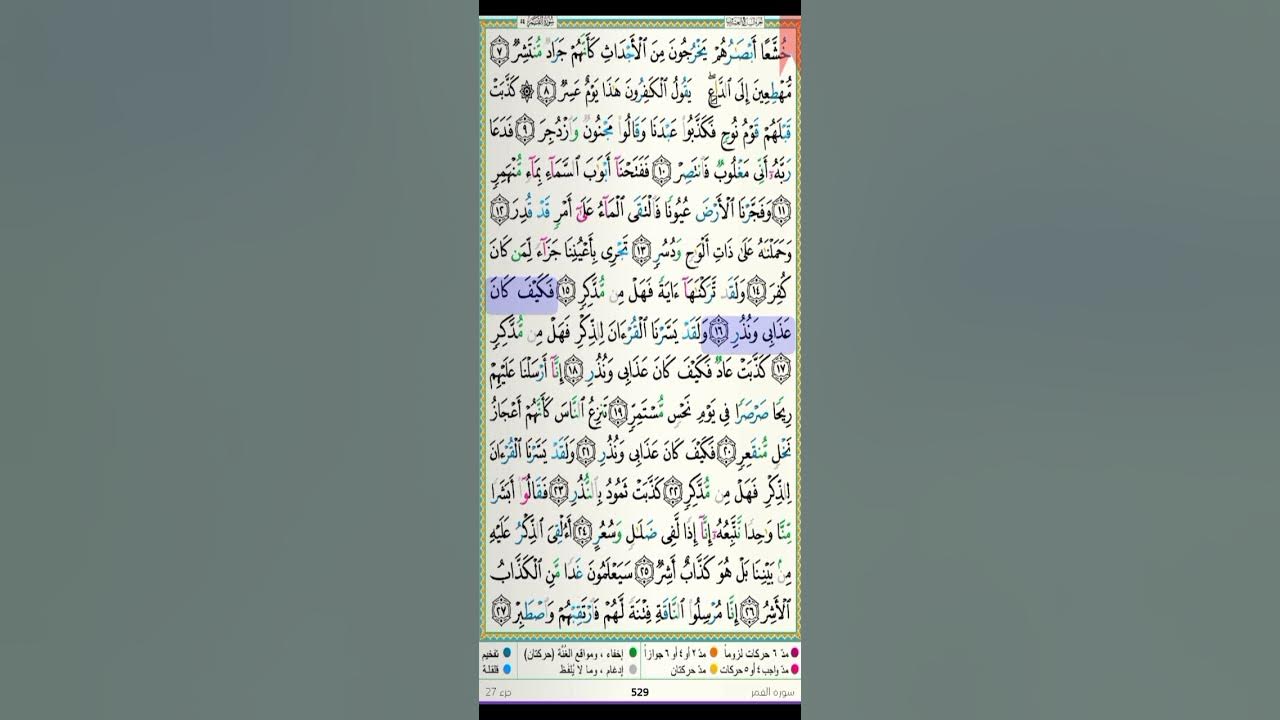 خُشَّعًا أَبْصَٰرُهُمْ يَخْرُجُونَ مِنَ ٱلْأَجْدَاثِ كَأَنَّهُمْ جَرَادٌ مُّنتَشِرٌ ٧
مُّهْطِعِينَ إِلَى ٱلدَّاعِ ۖ يَقُولُ ٱلْكَٰفِرُونَ هَٰذَا يَوْمٌ عَسِرٌ ٨ ۞ كَذَّبَتْ
قَبْلَهُمْ قَوْمُ نُوحٍ فَكَذَّبُوا۟ عَبْدَنَا وَقَالُوا۟ مَجْنُونٌ وَٱزْدُجِرَ ٩ فَدَعَا
رَبَّهُۥٓ أَنِّى مَغْلُوبٌ فَٱنتَصِرْ ١٠ فَفَتَحْنَآ أَبْوَٰبَ ٱلسَّمَآءِ بِمَآءٍ مُّنْهَمِرٍ
١١ وَفَجَّرْنَا ٱلْأَرْضَ عُيُونًا فَٱلْتَقَى ٱلْمَآءُ عَلَىٰٓ أَمْرٍ قَدْ قُدِرَ ١٢
وَحَمَلْنَٰهُ عَلَىٰ ذَاتِ أَلْوَٰحٍ وَدُسُرٍ ١٣ تَجْرِى بِأَعْيُنِنَا جَزَآءً لِّمَن كَانَ
كُفِرَ ١٤ وَلَقَد تَّرَكْنَٰهَآ ءَايَةً فَهَلْ مِن مُّدَّكِرٍ ١٥ فَكَيْفَ كَانَ
عَذَابِى وَنُذُرِ ١٦ وَلَقَدْ يَسَّرْنَا ٱلْقُرْءَانَ لِلذِّكْرِ فَهَلْ مِن مُّدَّكِرٍ
١٧ كَذَّبَتْ عَادٌ فَكَيْفَ كَانَ عَذَابِى وَنُذُرِ ١٨ إِنَّآ أَرْسَلْنَا عَلَيْهِمْ
رِيحًا صَرْصَرًا فِى يَوْمِ نَحْسٍ مُّسْتَمِرٍّ ١٩ تَنزِعُ ٱلنَّاسَ كَأَنَّهُمْ أَعْجَازُ
نَخْلٍ مُّنقَعِرٍ ٢٠ فَكَيْفَ كَانَ عَذَابِى وَنُذُرِ ٢١ وَلَقَدْ يَسَّرْنَا ٱلْقُرْءَانَ
لِلذِّكْرِ فَهَلْ مِن مُّدَّكِرٍ ٢٢ كَذَّبَتْ ثَمُودُ بِٱلنُّذُرِ ٢٣ فَقَالُوٓا۟ أَبَشَرًا
مِّنَّا وَٰحِدًا نَّتَّبِعُهُۥٓ إِنَّآ إِذًا لَّفِى ضَلَٰلٍ وَسُعُرٍ ٢٤ أَءُلْقِىَ ٱلذِّكْرُ عَلَيْهِ
مِنۢ بَيْنِنَا بَلْ هُوَ كَذَّابٌ أَشِرٌ ٢٥ سَيَعْلَمُونَ غَدًا مَّنِ ٱلْكَذَّابُ
ٱلْأَشِرُ ٢٦ إِنَّا مُرْسِلُوا۟ ٱلنَّاقَةِ فِتْنَةً لَّهُمْ فَٱرْتَقِبْهُمْ وَٱصْطَبِرْ ٢٧
مدّ ٦ حركات لزوماً مدّ ٢ أو ٤ أو ٦ جوازاً إخفاء ، ومواقع الغُنَّة (حركتان) تفخيم
مدّ واجب ٤ أو ٥ حركات مدّ حركتان إدغام ، وما لا يُلفَظ قلقلة
سورة القمر 529 جزء 27